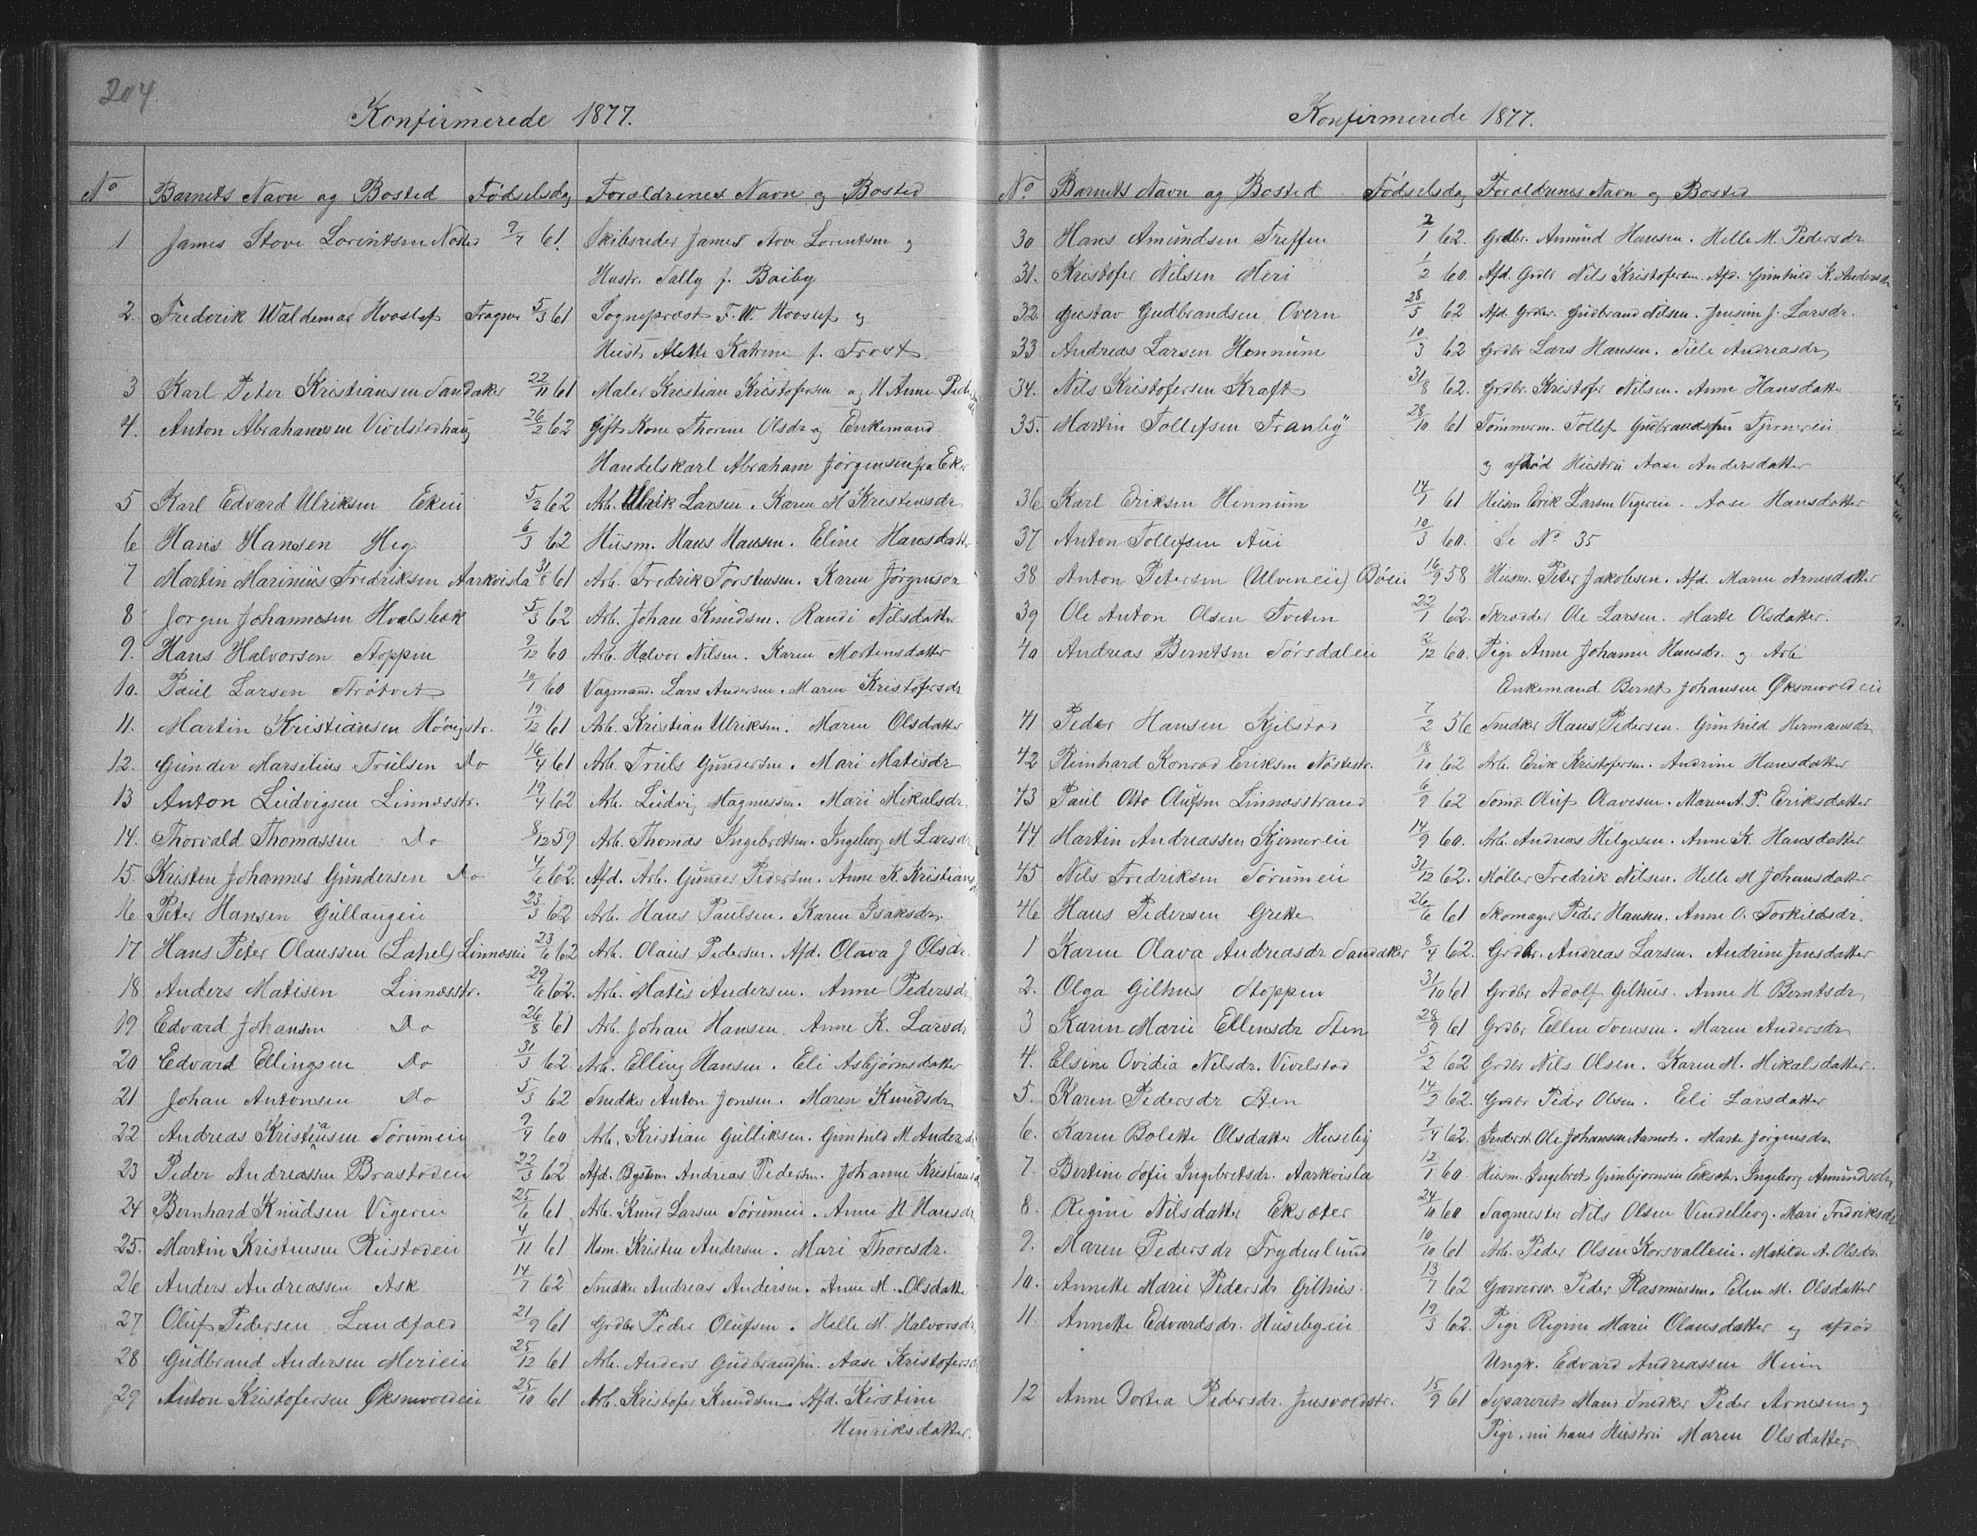 204
Konfirmerede 1877.
No Barnets Navn og Bosted Fødselsdag Forældrenes Navn og Bosted
1 James Stove Lorentsen Nøsted 9/7 61. Skibsreder James Stove Lorentsen og
Hustr. Sally f. Boiby
2. Frederik Waldemar Hvoslef Tragnes 5/3 61 Sognepræst F. W. Hvoslef og
Hustr. Alette Katrine f. Frost.
3 Karl Peter Kristiansen Sandaker 22/11 61 Maler Kristian Kristofersen og H. Anne Peders
4. Anton Abrahamsen Vivelstadhaug 26/2 62 Gift Kone Thorine Olsdr og Enkemand
Handelskarl Abraham Jørgensen fra Eker
5 Karl Edvard Ulriksen Ekeii 5/2 62 Arb. Ulrik Larsen. Karen M Kristensdr
6 Hans Hansen Heg 6/3 62 Husm. Hans Hansen. Eline Hansdatter
7 Martin Marinius Fredriksen Aarkvisla 31/8 61 Arb. Fredrik Torstensen. Karen Jørgensdr
8 Jorgen Johannesen Hvalsbæk 5/3 62 Arb. Johan Knudsen. Randi Nilsdatter
9. Hans Halvorsen Stoppen 9/12 60 Arb. Halvor Nilsen. Karen Mortensdatter
10. Paul Larsen Strøtvet 60 Vagmand. Lars Andersen. Maren Kristofersdr
11. Martin Kristiansen Høvigstr. 19/12 61 Arb. Kristian Ulriksen. Maren Olsdatter
12. Gunder Marselius Trulsen Do 16/4 61 Arb. Truls Gundersen. Mari Matisdr
13 Anton Ludvigsen Linnæsstr. 19/4 62 Arb. Ludvig Magnussen. Mari Mikalsdr
14. Thorvald Thomassen Do 8/12 59 Arb. Thomas Ingebretsen. Ingeborg M Larsdr
15. Kristen Johannes Gundersen Do 4/6 62. Afd. Arb. Gunder Pedersen. Anne K Kristiansd
16 Peter Hansen Gullaugeii 23/3 62 Arb. Hans Paulsen. Karen Isaksdr.
17 Hans Peter Olaussen (Lahel) Linnæseii 23/6 62 Arb. Olaus Pedersen. Afd. Olava J Olsdr.
18 Anders Matisen Linnæsstr. 29/6 62. Arb. Matis Andersen. Anne Pedersdr
19 Edvard Johansen Do 26/8 61 Arb. Johan Hansen. Anne K. Larsdr
20 Edvard Ellingsen Do 31/3 62. Arb. Elling Hansen. Eli Asbjørnsdatter
21 Johan Antonsen Do 5/3 62 Snedker Anton Jonsen. Maren Knudsdr
22 Andreas Kristiansen Sørumeii 9/4 60 Arb. Kristian Gulliksen. Gunhild M Andersdr
23 Peder Andreassen Brastadeii 22/3 62 Afd. Bygselm. Andreas Pedersen. Johanne Kristiansd
24 Bernhard Knudsen Vigereii 25/6 61 Arb. Knud Larsen Sørumeii. Anne H Hansdr
25. Martin Kristensen Rustadeii 4/11 61 Hsm. Kristen Andersen. Mari Thoresdr.
26 Anders Andreassen Ask 14/1 62 Snedker Andreas Andersen. Anne M. Olsdatter
27 Oluf Pedersen Landfald 21/9 61 Grdbr Peder Olufsen. Helle M. Halvorsdr
28 Gudbrand Andersen Merieii 25/12 61 Arb. Anders Gudbrandsen. Aase Kristofersd
29 Anton Kristofersen Øksnevoldeii 25/10 61 Arb. Kristofer Knudsen. Afd. Kirstine
Henriksdatter.
Konfirmerede 1877.
No. Barnets Navn og Bosted Fødselsdag Forældrenes Navn og Bosted
30 Hans Amundsen Treffen 2/1 62. Grdbr. Amund Hansen. Helle M. Pedersdr
31. Kristofer Nilsen Meri 1/2 60. Afd. Grdbr Nils Kristofersen. Afd. Gunhild K. Andersdr
32 Gustav Gudbrandsen Overn 28/5 62 Afd. Grdbr. Gudbrand Nilsen. J. Larsdr.
33 Andreas Larsen Hennum 10/3 62 Grdbr Lars Hansen. Sille Andreasdr
34. Nils Kristofersen Kraft 31/8 62. Grdbr. Kristofer Nilsen. Anne Hansdatter
35. Martin Tollefsen Tranby 28/10 61 Tømmerm. Tollef Gudbrandsen Tjerneeii
og afdød Hustru Aase Andersdatter
36 Karl Eriksen Hennum 14/1 61 Husm Erik Larsen Vigereii. Aase Hansdatter
37 Anton Tollefsen Aui 10/3 60. Se No 35
38 Anton Petersen (Ulveneii) Bøeii 16/9 58 Husm. Peter Jakobsen. Afd. Maren Arnesdatter
39 Ole Anton Olsen Tveten 22/1 62. Skrædder Ole Larsen. Marte Olsdatter.
40 Andreas Berntsen Torsdaleii 2/12 60. Pige Anne Johanne Hansdr. og Arb
Enkemand Bernt Johansen Øksnevoldeii
41 Peder Hansen Kjilstad 7/2 56 Snedker Hans Pedersen. Gunhild Hermansdr
42 Reinhard Konrad Eriksen Nøstestr. 18/10 62 Arb. Erik Kristofersen. Andrine Hansdatter
43 Paul Otto Olufsen Linnæsstrand 6/9 62 Sømd. Oluf Olavesen. Maren A. P. Eriksdatter
44. Martin Andreassen Kjinereii 14/9 60. Arb. Andreas Helgesen. Anne K. Hansdatter
45 Nils Fredriksen Sørumeii 31/12 62. Møller Fredrik Nilsen. Helle M Johansdatter
46 Hans Pedersen Grette 26/6 61 Skomager Peder Hansen. Anne O. Torkildsdr.
1 Karen Olava Andreasdr Sandaker 8/4 62. Grdbr. Andreas Larsen. Andrine Jensdatter
2. Olga Gilhus Stoppen 31/10 61 Grdbr Adolf Gilhus. Anne H Berntsdr
3 Karen Marie Ellensdr Sten 28/9 61 Grdbr Ellen Svensen. Maren Andersdr
4. Elsine Ovidia Nilsdr. Vivelstad 5/2 62 Grdbr Nils Olsen. Karen M. Mikalsdatter.
5. Karen Pedersdr Sten 14/2 62. Grdbr Peder Olsen. Eli Larsdatter
6. Karen Bolette Olsdatter Huseby 7/4 62. Inderst Ole Johansen Aamot. Marte Jørgensdr
7. Bertine Sofie Ingebretsdr. Aarkvisla 12/1 60. Husm. Ingebret Gunbjørnsen Eksæter. Ingeborg Amundsdr
8. Regine Nilsdatter Eksæter 24/10 60 Sagmester Nils Olsen Vindelborg. Mari Fredriksdr
9. Maren Pedersdr Frydenlund 10/10 61 Arb. Peder Olsen Korsvalleii. Matilde A. Olsdr
10. Annette Marie Pedersdr Gilhus. 13/7 62 Garversv. Peder Rasmussen. Elen M. Olsdatter
11. Annette Edvardsdr. Husebyeii 19/3 62. Pige Regine Marie Olausdatter og afdød
Ungk. Edvard Andreassen Heen
12 Anne Dortea Pedersdr. Jusvoldstr. 15/9 61 Separeret Mand Snedker Peder Arnesen og
Pige, nu hans Hustru Maren Olsdatter.